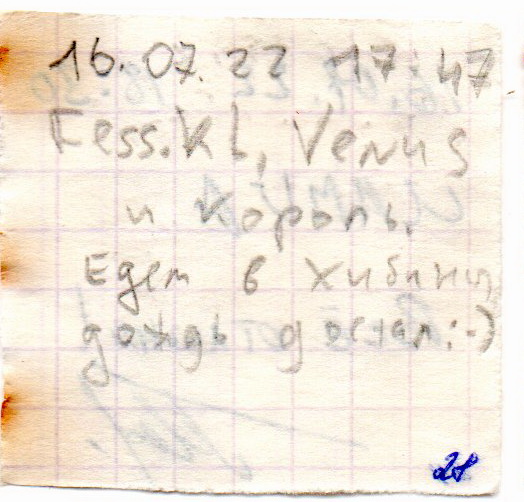 16.07.22 17:47
Fess.Kb, Venus
и Король.
Едем в Хибины
дождь достал :-)